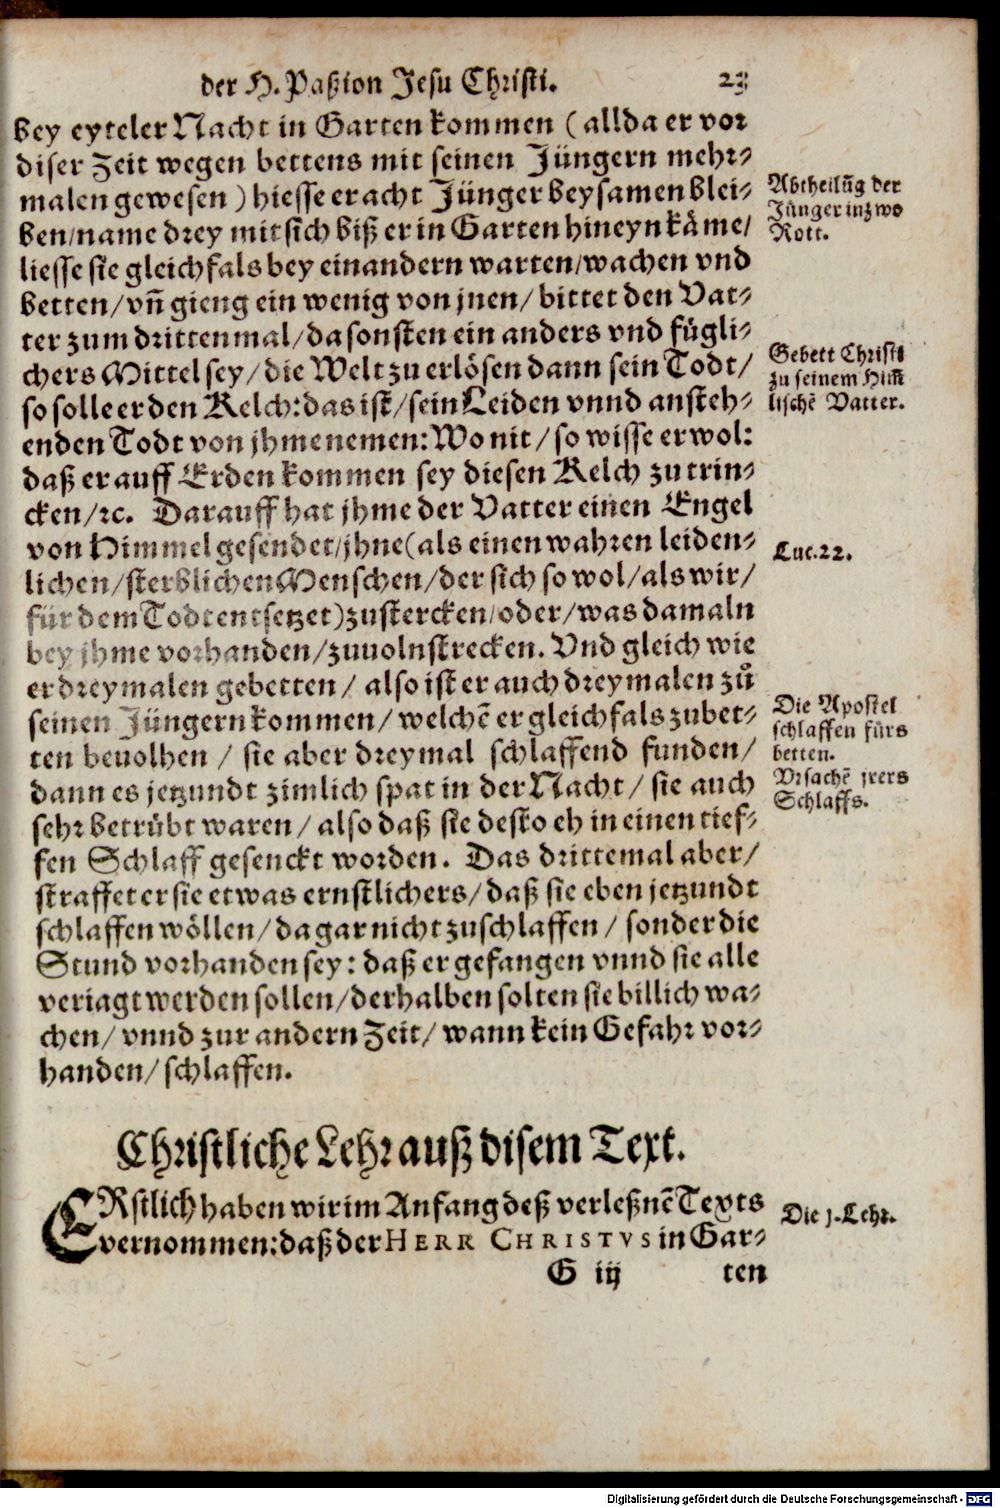 der H. Paßion Jesu Christi. 23
bey eyteler Nacht in Garten kommen (allda er vor
diser Zeit wegen bettens mit seinen Jüngern mehr⸗
malen gewesen) hiesse er acht Jünger beysamen blei⸗
ben/name drey mit sich biß er in Garten hineyn käme/
liesse sie gleichfals bey einandern warten/wachen vnd
betten/vñ gieng ein wenig von jnen/bittet den Vat⸗
ter zum drittenmal/da sonsten ein anders vnd fügli⸗
chers Mittel sey/die Welt zu erlösen dann sein Todt/
so solle er den Kelch: das ist/sein Leiden vnnd ansteh⸗
enden Todt von jhme nemen: Wo nit/so wisse er wol:
daß er auff Erden kommen sey diesen Kelch zu trin⸗
cken/ꝛc. Darauff hat jhme der Vatter einen Engel
von Himmel gesendet/jhne (als einen wahren leiden⸗
lichen/sterblichen Menschen/der sich so wol/als wir/
für dem Todt entsetzet) zustercken/oder/was damaln
bey jhme vorhanden/zuuolnstrecken. Vnd gleich wie
er dreymalen gebetten/also ist er auch dreymalen zů
seinen Jüngern kommen/welchẽ er gleichfals zubet⸗
ten beuolhen/sie aber dreymal schlaffend funden/
dann es jetzundt zimlich spat in der Nacht/sie auch
sehr betrübt waren/also daß sie desto eh in einen tief⸗
fen Schlaff gesenckt worden. Das drittemal aber/
straffet er sie etwas ernstlichers/daß sie eben jetzundt
schlaffen wöllen/da gar nicht zuschlaffen/sonder die
Stund vorhanden sey: daß er gefangen vnnd sie alle
veriagt werden sollen/derhalben solten sie billich wa⸗
chen/vnnd zur andern Zeit/wann kein Gefahr vor⸗
handen/schlaffen.
Abtheilũg der
Jünger in zwo
Rott.
Gebett Christi
zu seinem Him̃
lischẽ Vatter.
Luc. 22.
Die Apostel
schlaffen fürs
betten.
Vrsachẽ jrers
Schlaffs.
Christliche Lehr auß disem Text.
ERstlich haben wir im Anfang deß verleßnẽ Texts
vernommen: daß der HERR CHRISTVS in Gar⸗
Die 1. Lehr.
G iij ten
Digitalisierung gefördert durch die Deutsche Forschungsgemeinschaft - DFG